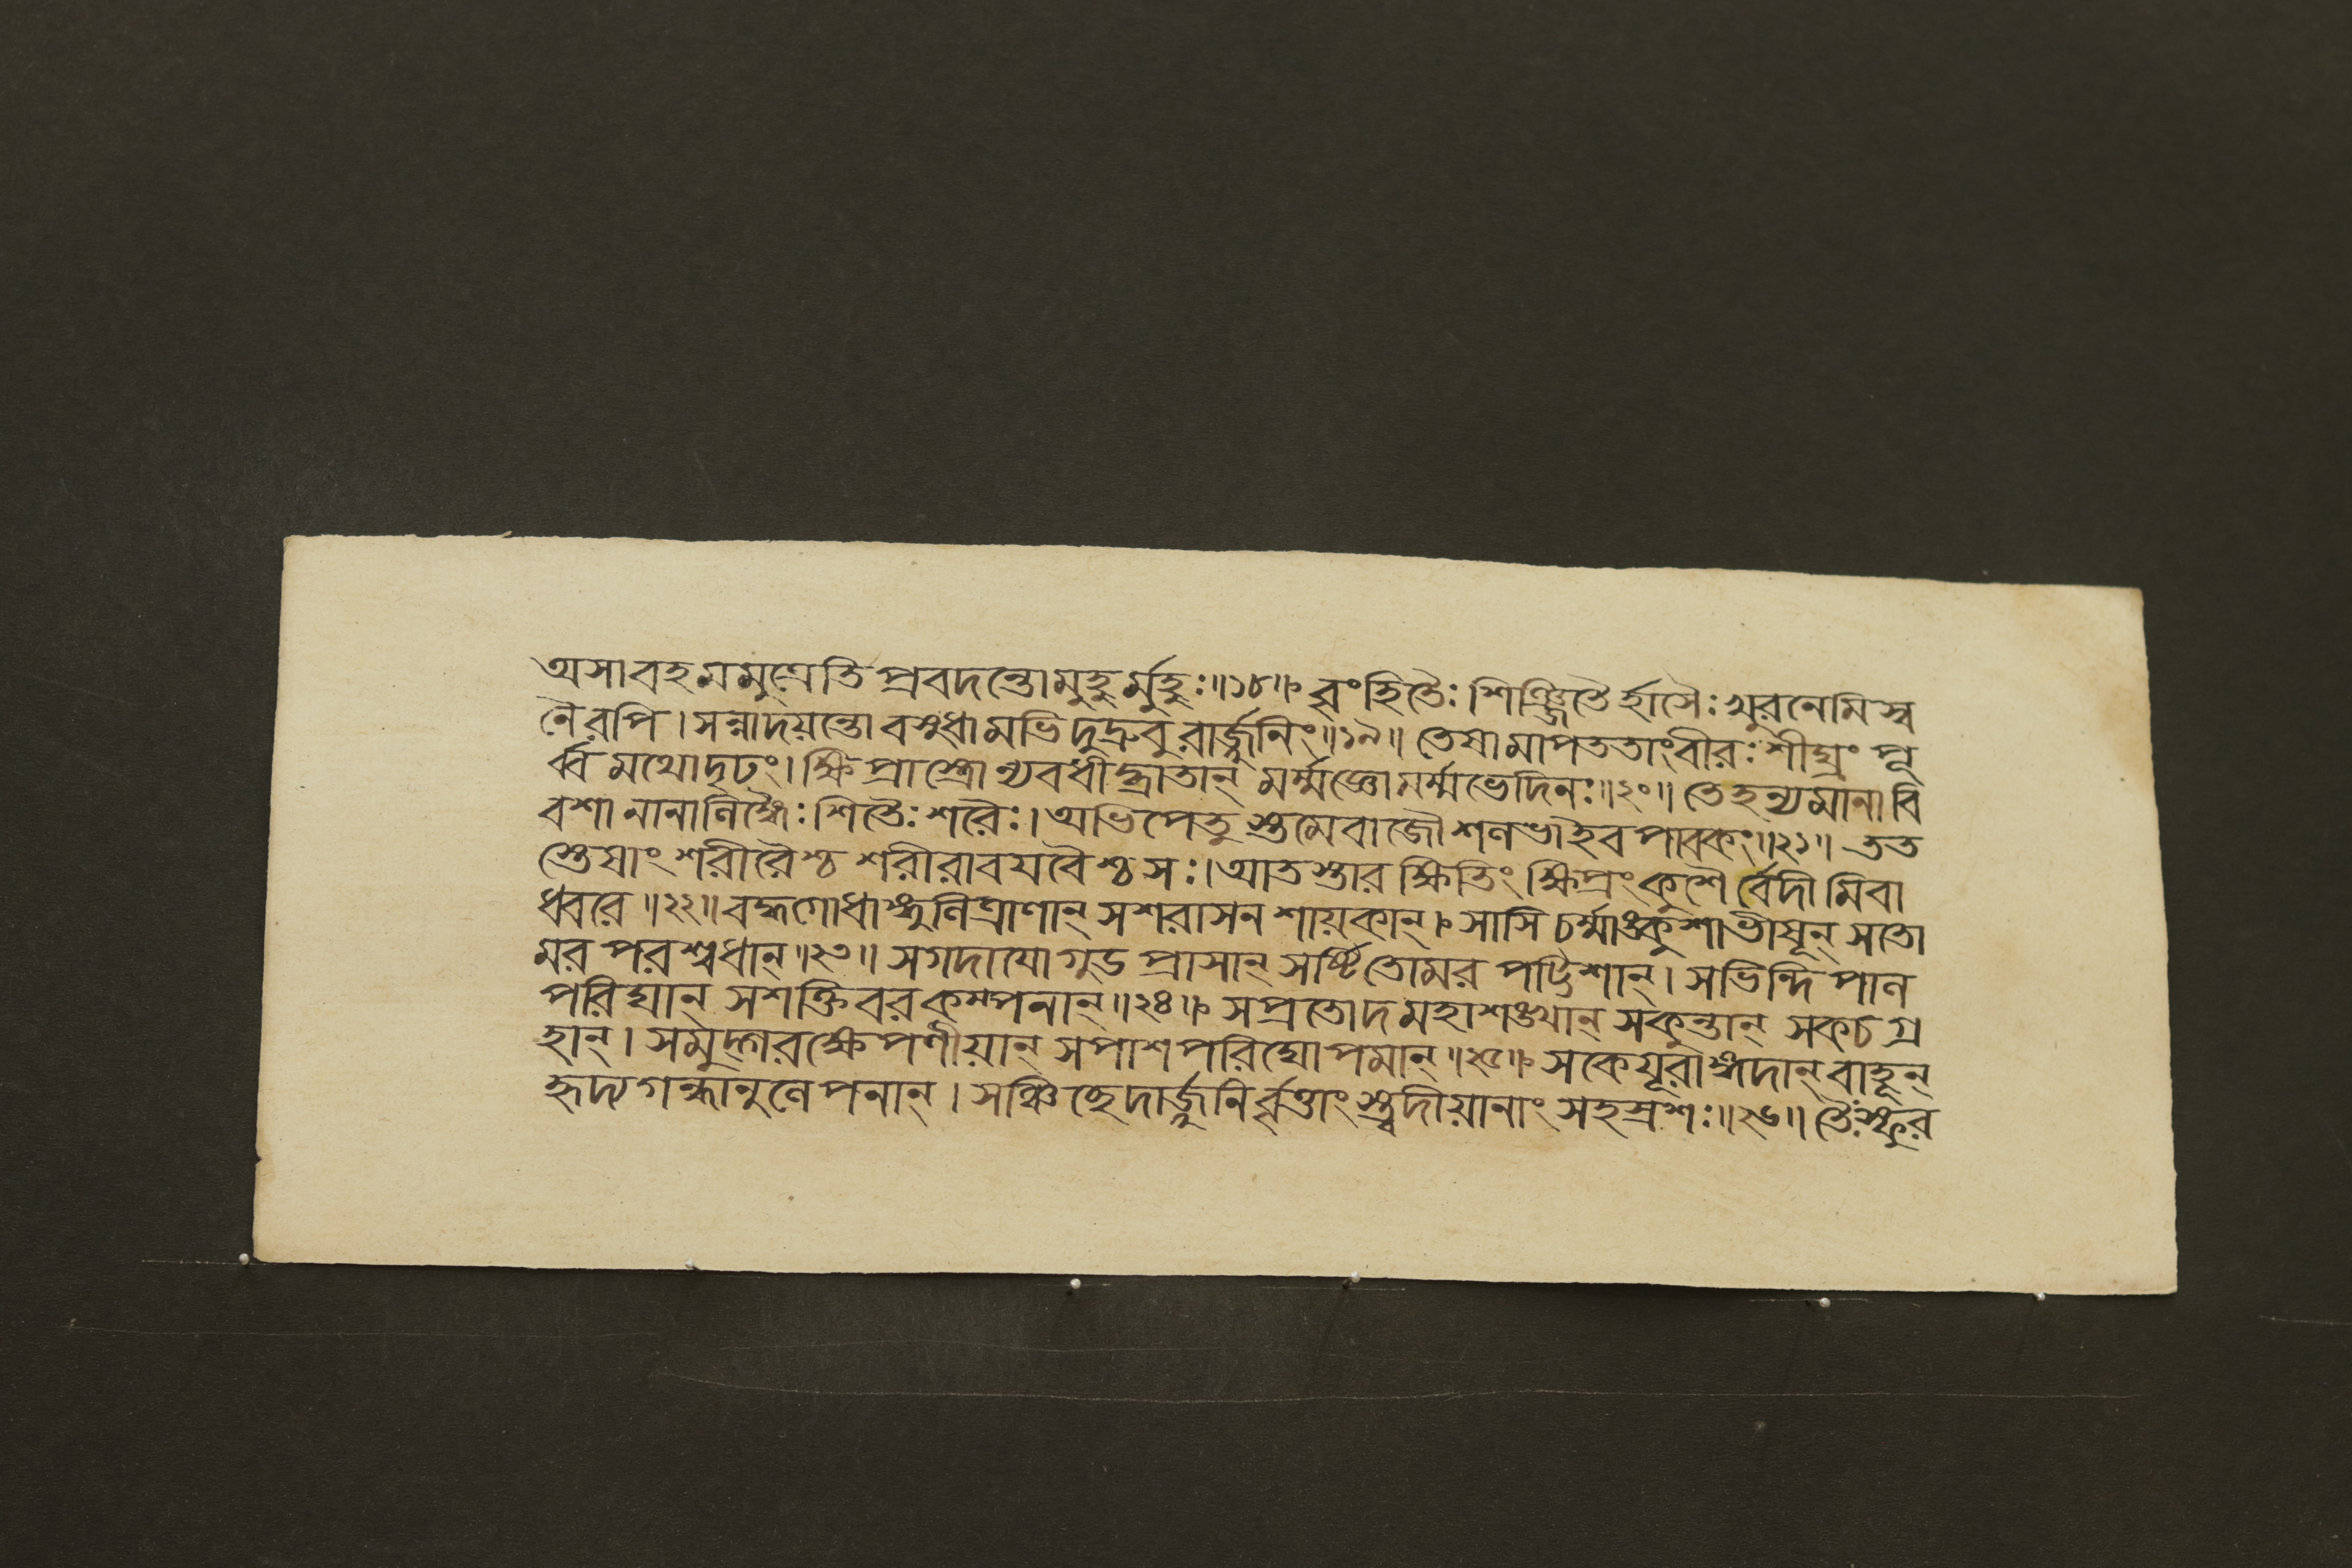 অসাবহমমুত্রেতি প্রবদন্তোমুহুর্মুহুঃ॥১৮॥ বৃংহিতৈঃ শিঞ্জিতৈর্হাসৈঃ খুরনেমিস্ব
নৈরপি। সন্নাদয়ন্তো বসুধামভিদুদ্রুবুরার্জ্জুনিং॥১৯॥ তেষামাপততাংবীরঃ শীঘ্রং পূ
র্ব্বমথোদৃঢং। ক্ষিপ্রাস্ত্রোন্যবধীদ্ব্রাতান্ মর্ম্মজ্ঞোমর্ম্মভেদিনঃ॥২০॥ তেহন্যমানাবি
বশা নানালিঙ্গৈঃ শিতৈঃ শরৈঃ। অভিপেতুস্তমেবাজৌ শলভাইব পাবকং॥২১॥ তত
স্তেষাং শরীরৈশ্চ শরীরাবযবৈশ্চ সঃ। আতস্তার ক্ষিতিং ক্ষিপ্রং কুশৈর্বেদীমিবা
ধ্বরে॥২২॥ বদ্ধগোধাঙ্গুলিত্রাণান্ সশরাসন শায়কান্। সাসি চর্ম্মাঙ্কুশাভীষূন্ সতো
মর পরশ্বধান্॥২৩॥ সগদাযোগুড প্রাসান্ সর্ষ্টিতোমর পট্টিশান্। সভিন্দিপাল
পরিঘান্ সশক্তিবরকম্পনান্॥২৪॥ সপ্রতোদমহাশঙ্খান্ সকুন্তান্ সকচগ্র
হান্। সমুদ্গরক্ষেপণীয়ান্ সপাশপরিঘোপমান্॥২৫॥ সকেযূরাঙ্গদান্ বাহূন্
হৃদ্যগন্ধানুলেপনান্। সঞ্চিচ্ছেদার্জ্জুনির্বৃত্তাংস্ত্বদীয়ানাং সহস্রশঃ॥২৬॥ তৈঃস্ফুর